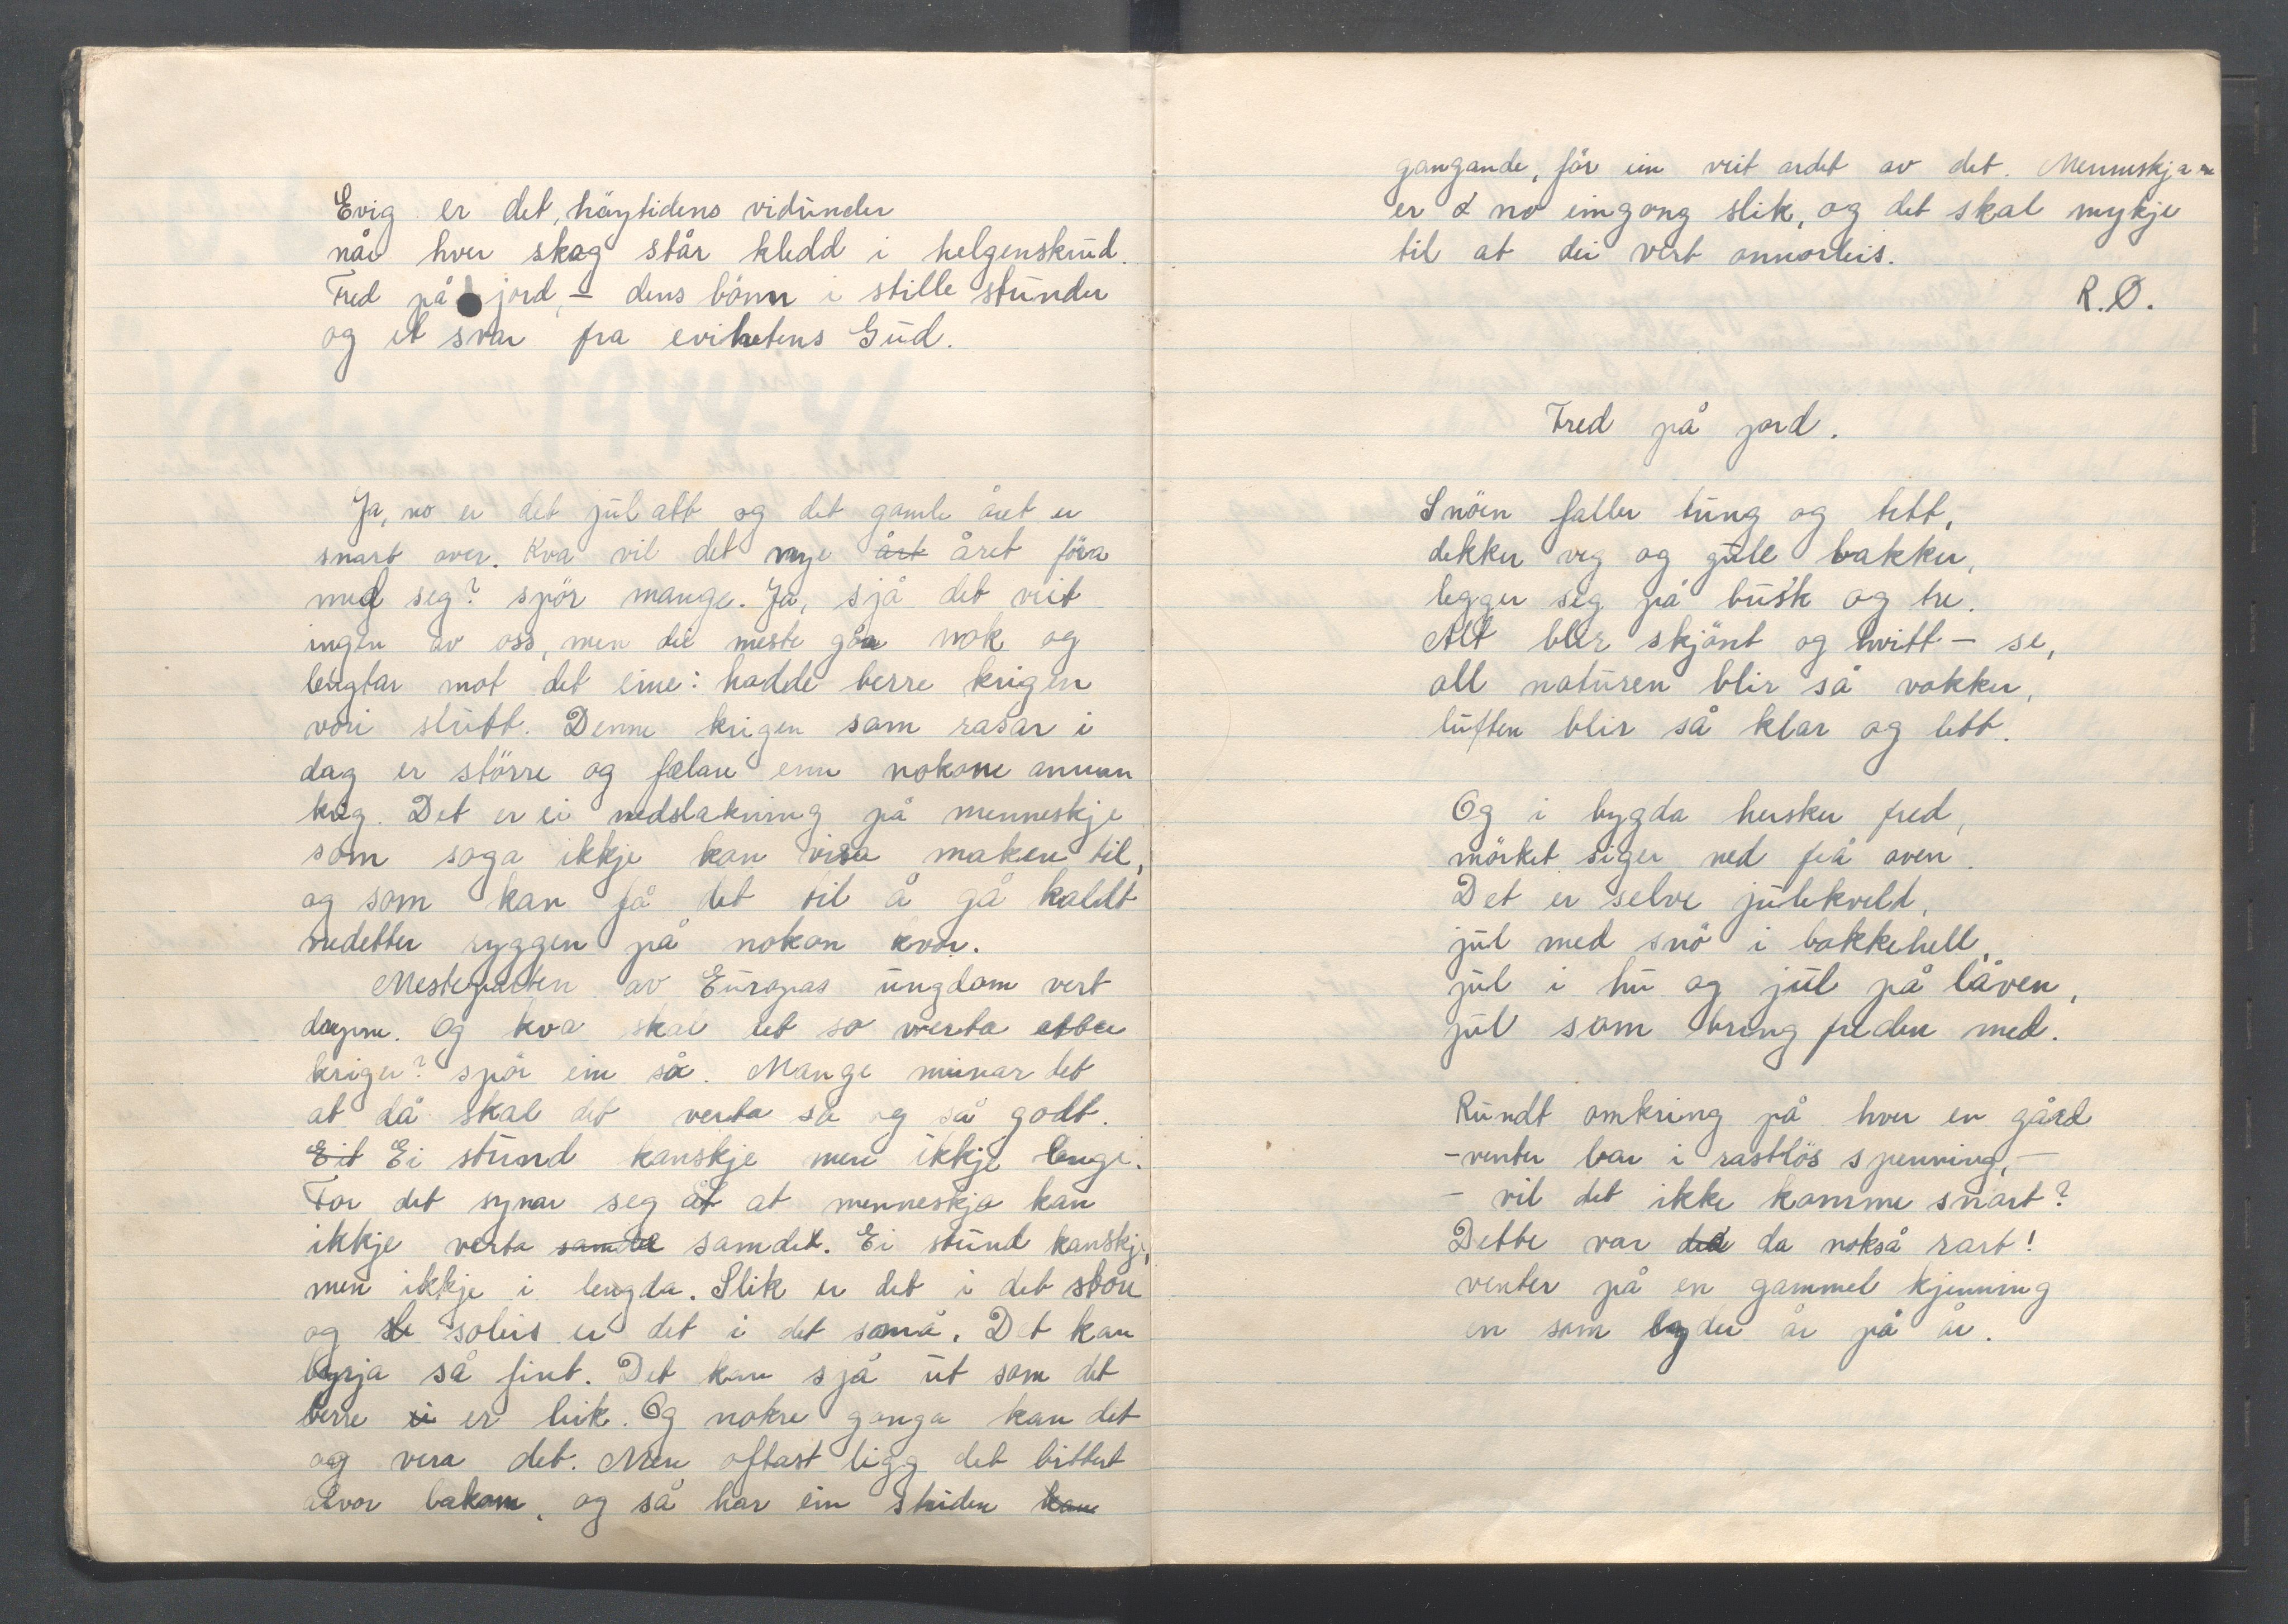 Evig er det, höytidens vidunder
når hver skog står kledd i helgenskrud.
Fred på jord, – dens bönn i stille stunder
og et svar fra evihetens Gud.
Ja, no er det jul att og det gamle året er
snart over. Kva vil det nye årt året föra
med seg? spör mange. Ja, sjå det veit
ingen av oss, men dei meste går nok og
lengtar mot det eine: hadde berre krigen
vori slutt. Denne krigen som rasar i
dag er större og fælare enn nokone annan
krig. Det er ei nedslakning på menneskje
som soga ikkje kan visa maken til,
og som kan få det til å gå kaldt
nedetter ryggen på nokon kvar.
Mesteparten av Europas ungdom vert
drepne. Og kva skal det so verta etter
krigen? spör ein så. Mange meinar det
at då skal det verta så og så godt.
Eit Ei stund kanskje men ikkje lenge.
For det synar seg at at menneskja kan
ikkje verta samde samdet. Ei stund kanskje,
men ikkje i lengda. Slik er det i det store
og sl soleis er det i det små. Det kan
byrja så fint. Det kan sjå ut som det
berre ei er leik. Og nokre gonga kan det
og vera det. Men oftast ligg det bittert
alvor bakom, og så har ein striden kan
gangande, för ein veit ordet av det. Menneskja
er no eingong slik, og det skal mykje
til at dei vert annorleis.
R.Ø.
Fred på jord.
Snöen faller tung og tett,
dekker veg og gule bakker,
legger seg på busk og tre.
Alt blir skjönt og hvitt – se,
all naturen blir så vakker,
luften blir så klar og lett.
Og i bygda hersker fred,
mörket siger ned frå oven.
Det er selve julekveld,
jul med snö i bakkehell,
jul i hu og jul på låven,
jul som bring freden med.
Rundt omkring på hver en gård
– venter bar i rastlös spenning, –
– vil det ikke komme snart?
Dette var det da nokså rart!
venter på en gammel kjenning
en som lyder år på år.